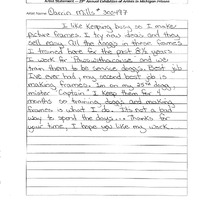 Artist Statement — 25th Annual Exhibition of Artists in Michigan Prisons
Artist Name: Darius Mills # 300477
I like Keeping busy so I make
picture frames. I try new ideas and they
sell easy. All the doggs in these frames
I trained here for the past 8½ years
I work for Pawswithacause and we
train them to be service dogg's. Best job
I've ever had, my second best job is
making frames. I'm on my 25th dogg,
mister "Captain". I Keep them for 9
months so training doggs and making
frames is what I do. It's not a bad
way to spend the days... Thanks for
your time, I hope you like my work.